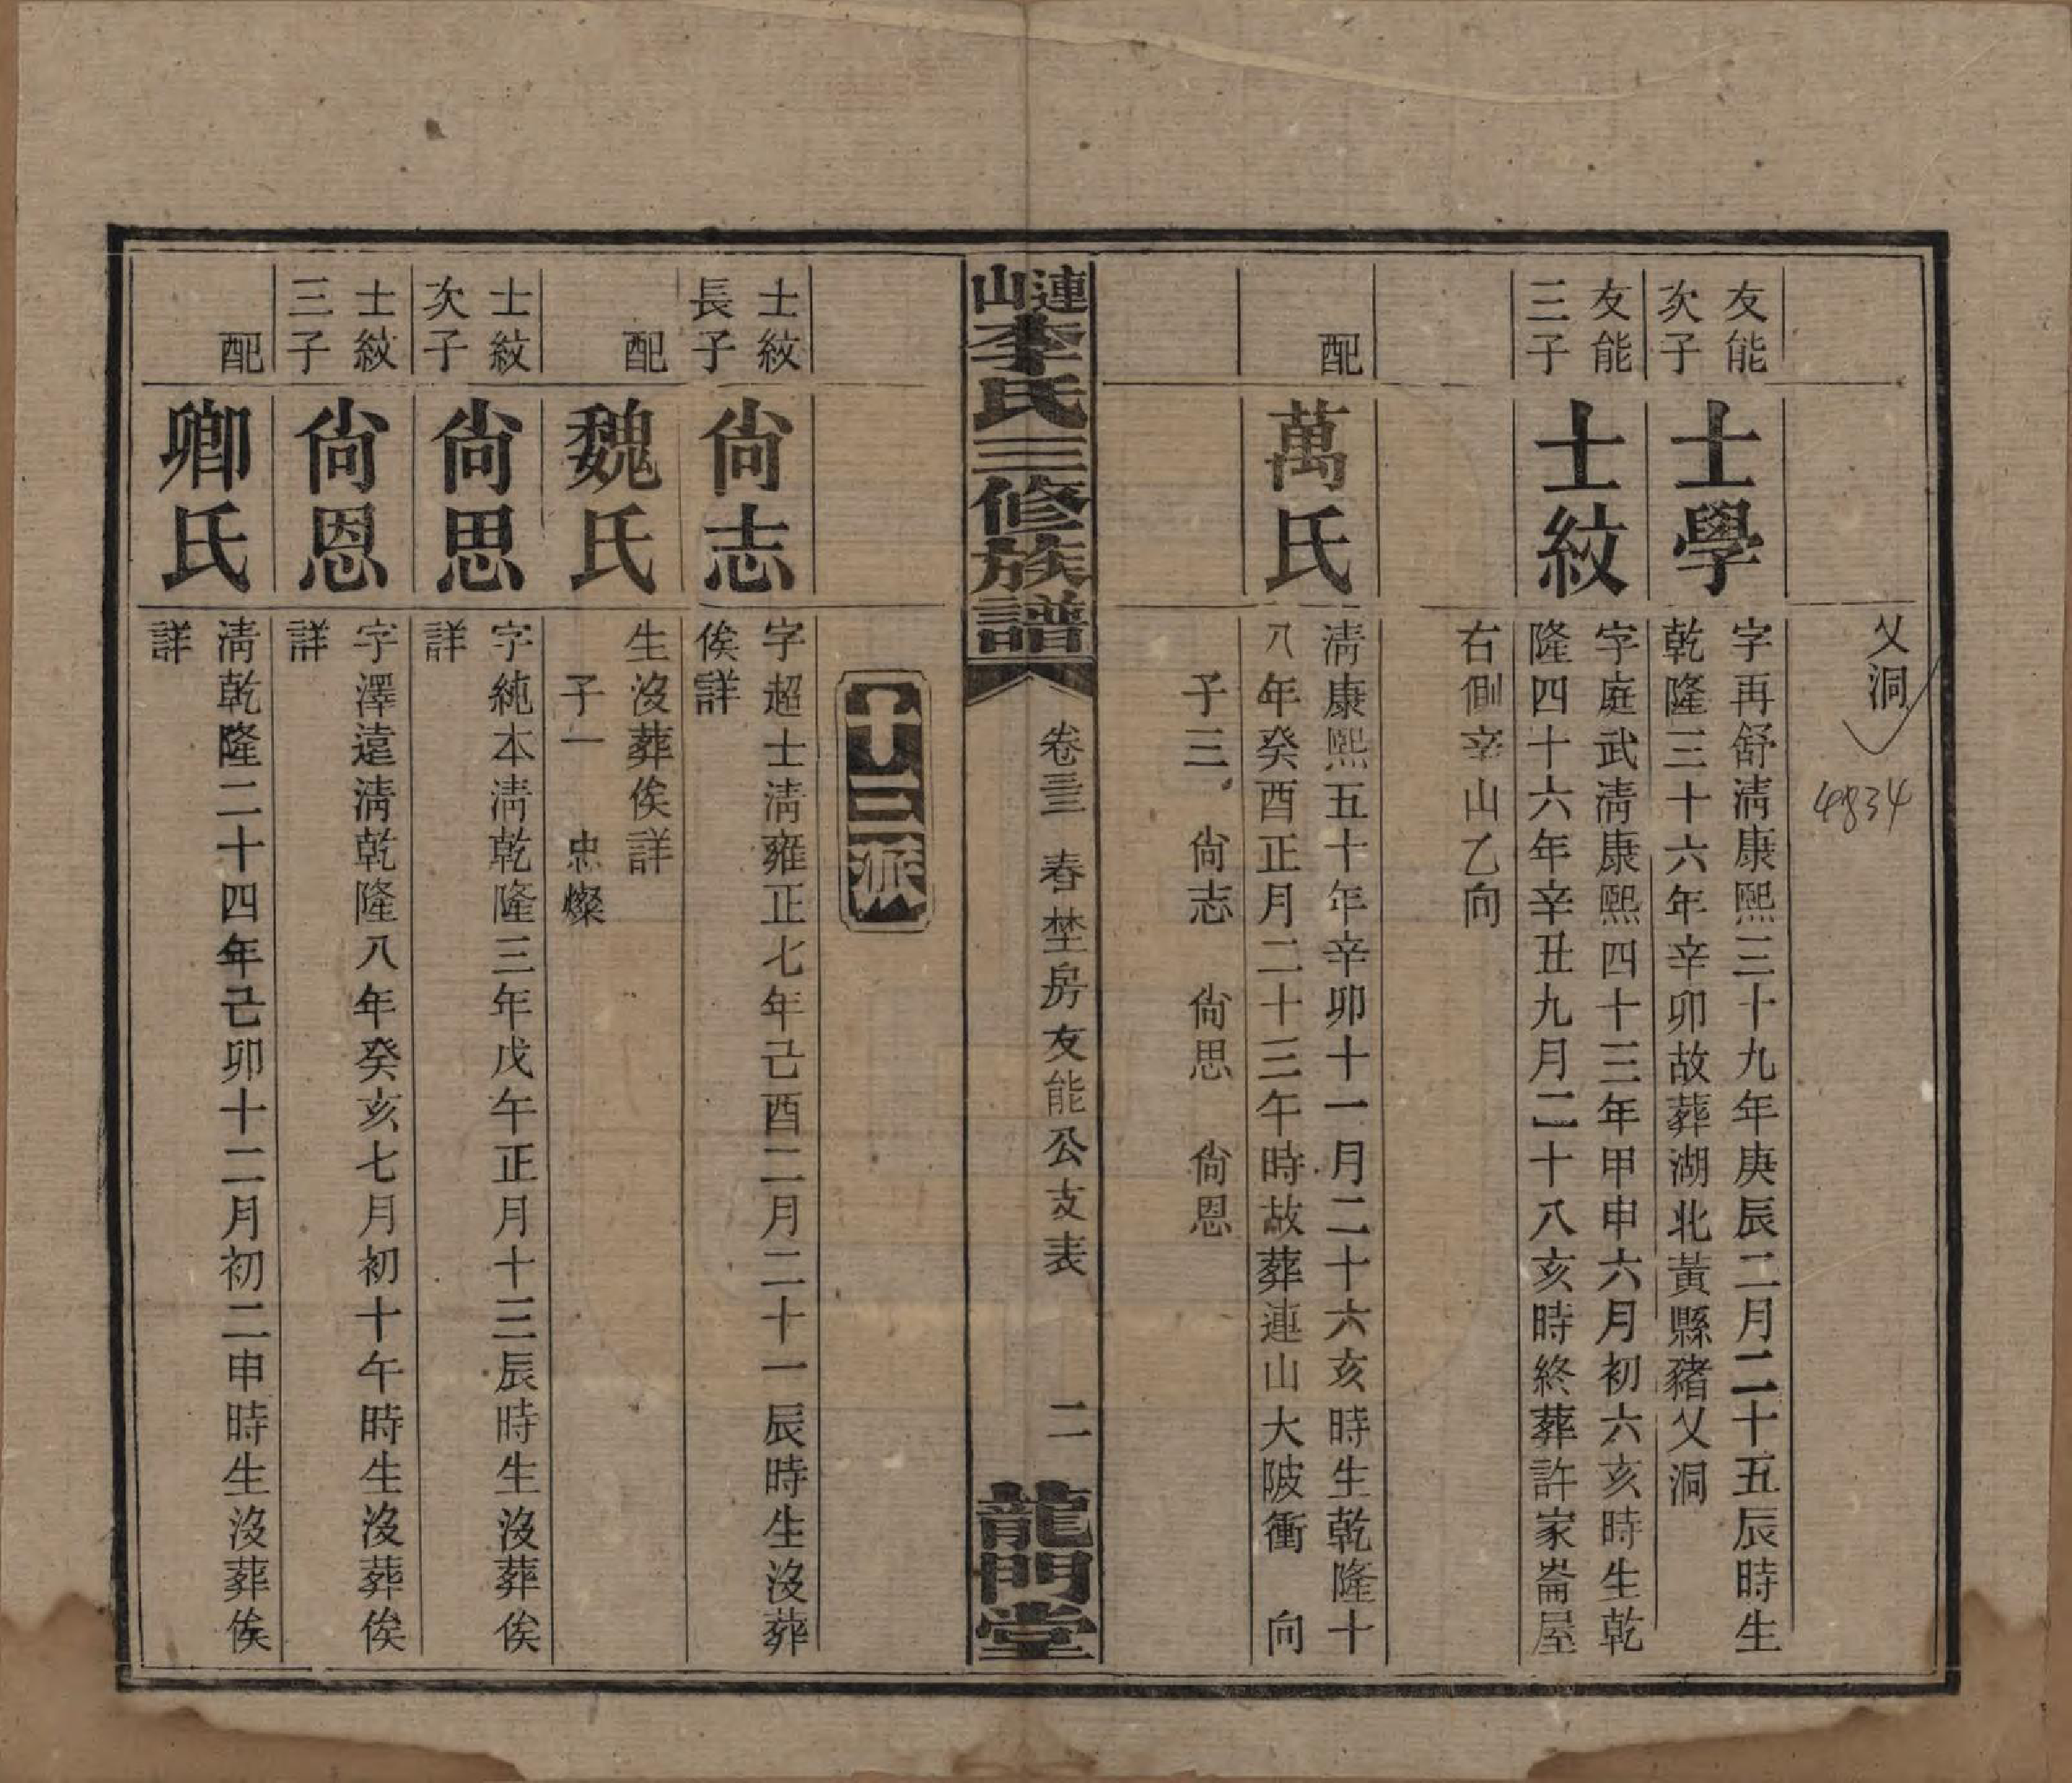 乂洞
4834
友能
次子
士學
字再舒淸康熙三十九年庚辰二月二十五辰時生
乾隆三十六年辛卯故葬湖北黃縣豬乂洞
友能
三子
士紋
字庭武淸康熙四十三年甲申六月初六亥時生乾
隆四十六年辛丑九月二十八亥時終葬許家崙屋
右側辛山乙向
配
萬氏
淸康熙五十年辛卯十一月二十六亥時生乾隆十
八年癸酉正月二十三午時故葬連山大陂衝 向
子三 尙志 尙思 尙恩
連山李氏三修族譜
卷三三 春埜房友能公支表
二
龍門堂
十三派
士紋
長子
尙志
字超士淸雍正七年己酉二月二十一辰時生沒葬
俟詳
配
魏氏
生沒葬俟詳
子一 忠燦
士紋
次子
尙思
字純本淸乾隆三年戊午正月十三辰時生沒葬俟
詳
士紋
三子
尙恩
字澤遠淸乾隆八年癸亥七月初十午時生沒葬俟
詳
配
卿氏
淸乾隆二十四年己卯十二月初二申時生沒葬俟
詳